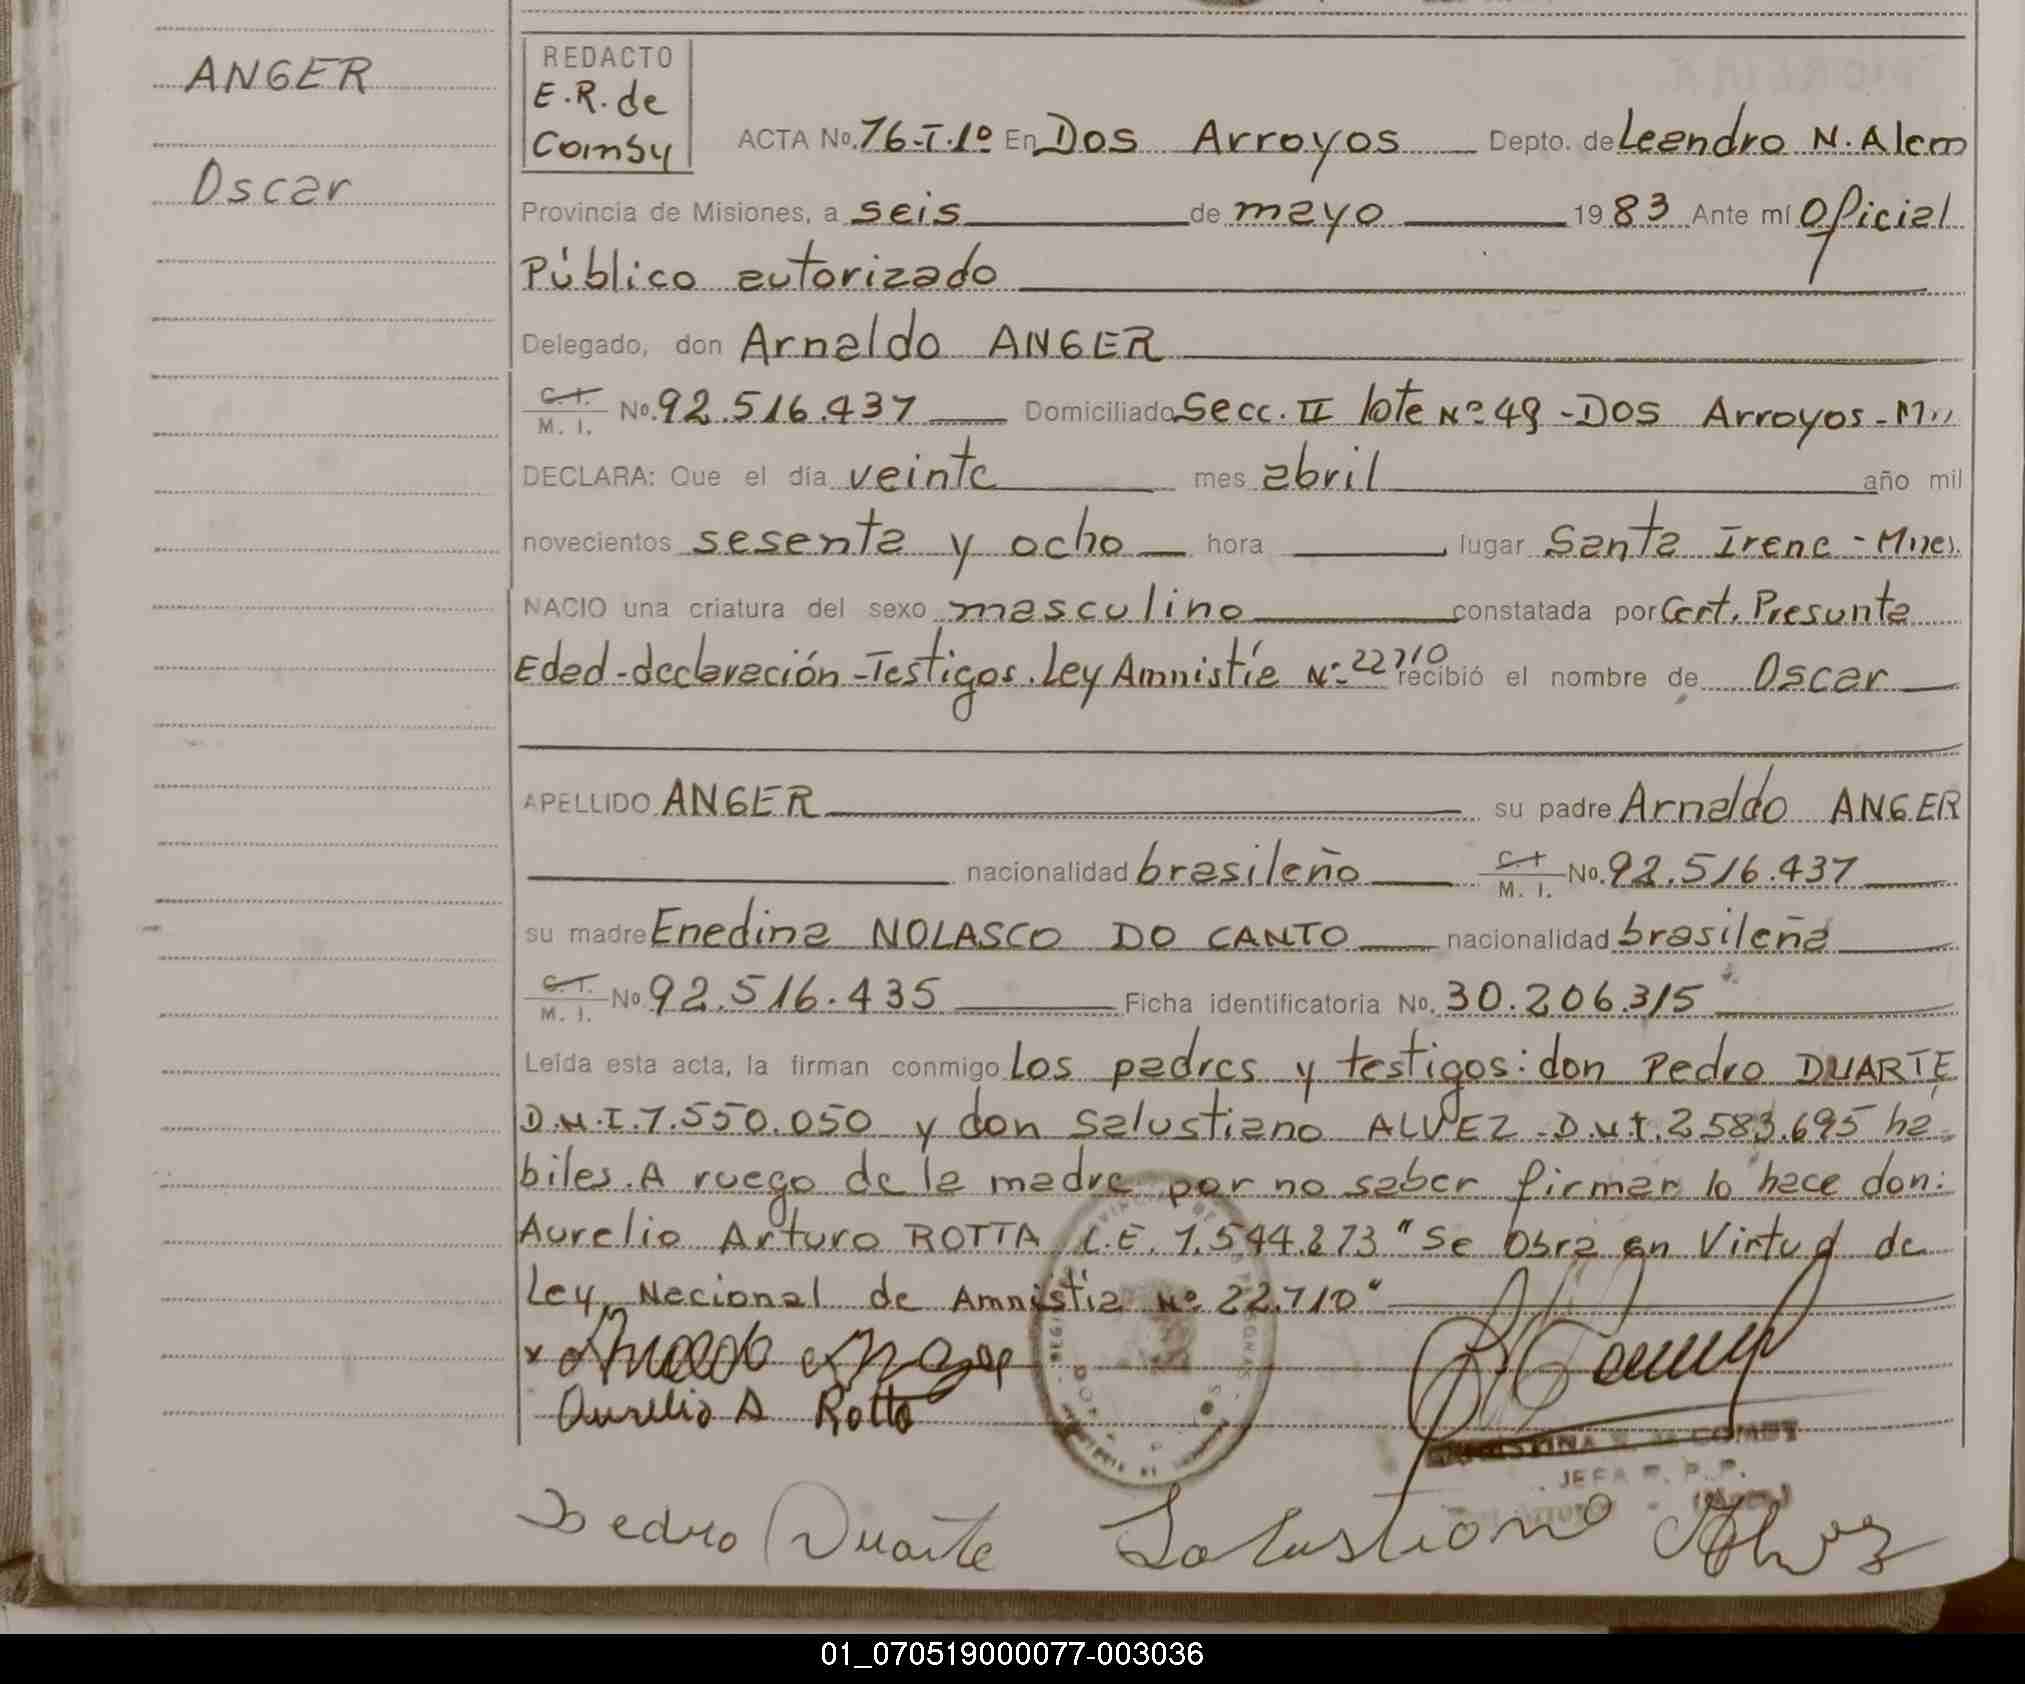 ANGER
Oscar
REDACTO
E.R. de
Comby
ACTA No. 76-I-1º En Dos Arroyos Depto. de Leandro N. Alem
Provincia de Misiones, a seis de mayo 1983 Ante mí Oficial
Público autorizado
Delegado, don Arnaldo ANGER
C.I.
M. I. No. 92.516.437 Domiciliado Secc. II lote Nº 49 - Dos Arroyos -
DECLARA: Que el día veinte mes abril año mil
novecientos sesenta y ocho hora lugar Santa Irene - Mnes.
NACIO una criatura del sexo masculino constatada por Cert. Presunta
Edad - declaración - Testigos. Ley Amnistía Nº 22710 recibió el nombre de Oscar
APELLIDO ANGER su padre Arnaldo ANGER
nacionalidad brasileño C.I.
M. I. No. 92.516.437
su madre Enedina NOLASCO DO CANTO nacionalidad brasileña
C.I.
M. I. No. 92.516.435 Ficha identificatoria No. 30.206.315
Leída esta acta, la firman conmigo Los padres y testigos: don Pedro DUARTE
D.N.I. 7.550.050 y don Salustiano ALVEZ - D.N.I. 2.583.695 ha
biles. A ruego de la madre por no saber firmar lo hace don:
Aurelio Arturo ROTTA L.E. 7.544.273 "Se Obra en Virtud de
Ley Nacional de Amnistía Nº 22.710"
x Arnaldo Anger
Aurelio A Rotta
DE COMBY
JEFA R. P. P.
Pedro Duarte Salustiano Alvez
01_070519000077-003036